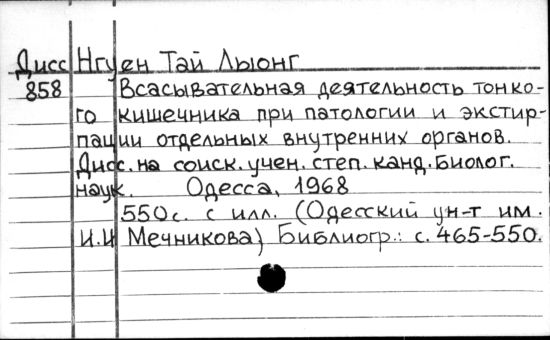 Дисс Нгуен Тай Лыонг
858 Всасывательная деятельность тонко-
го кишечника при патологии и экстир-
пации отдельных внутренних органов.
Дисс. на соиск. учен. степ. канд. биолог.
наук. Одесса, 1968
550с. с илл. (Одесский ун-т им.
И.И Мечникова) Библиогр.: с. 465-550.